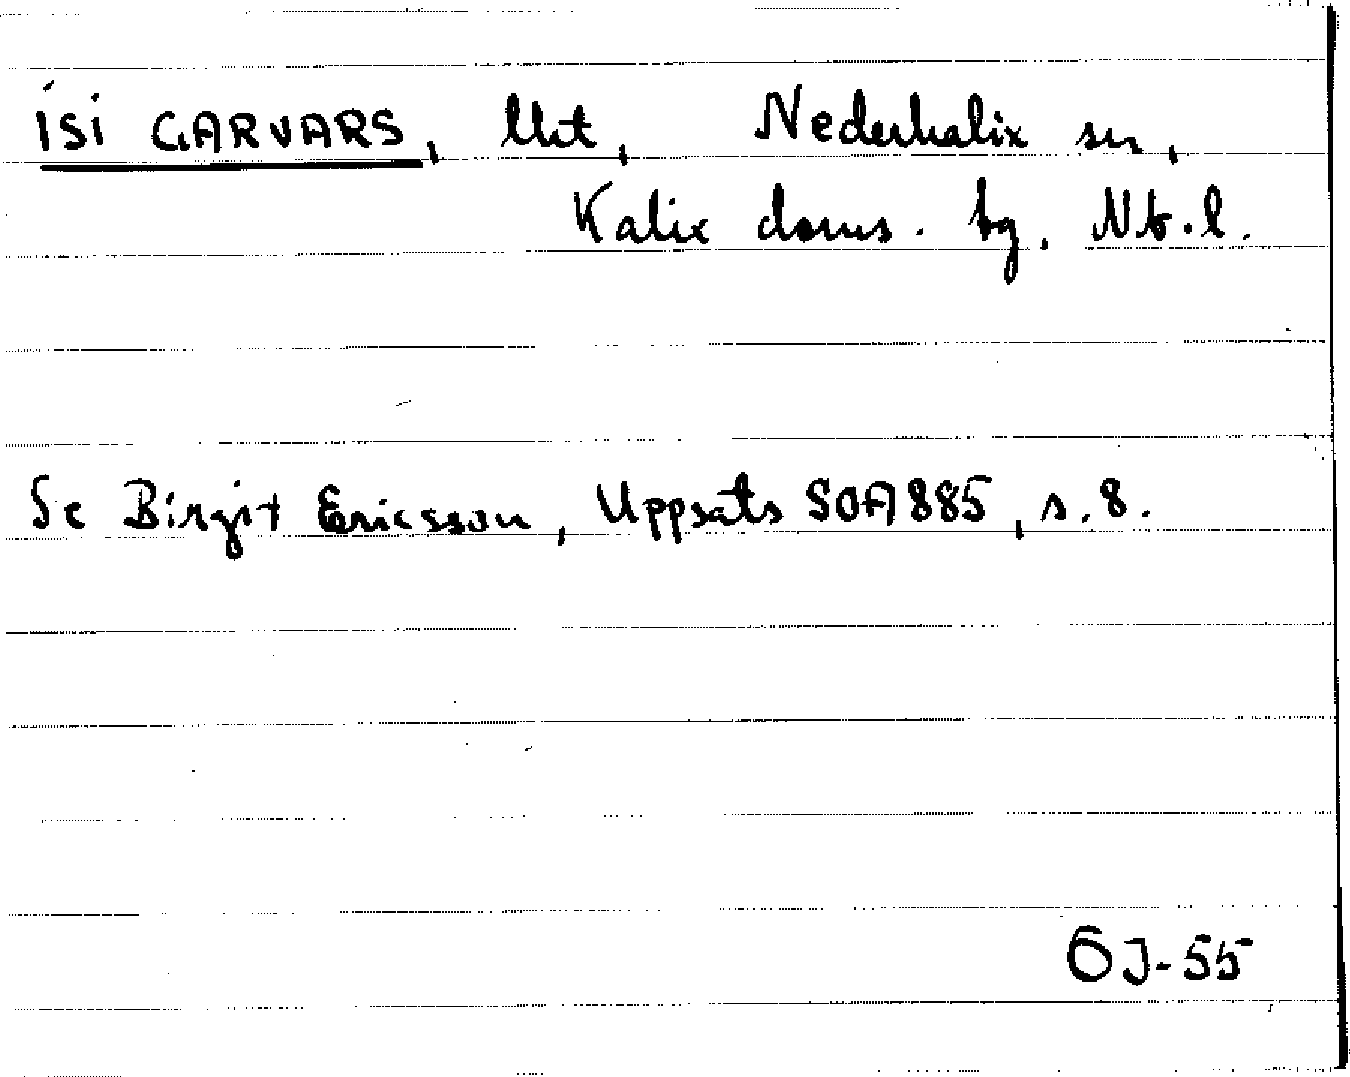 ISI GARVARS, lht, Nederkalix sn,
Kalix doms. tg. Nb.l.
Se Birgit Ericsson, Uppsats SOFA 885, s.8.
ÖJ-55